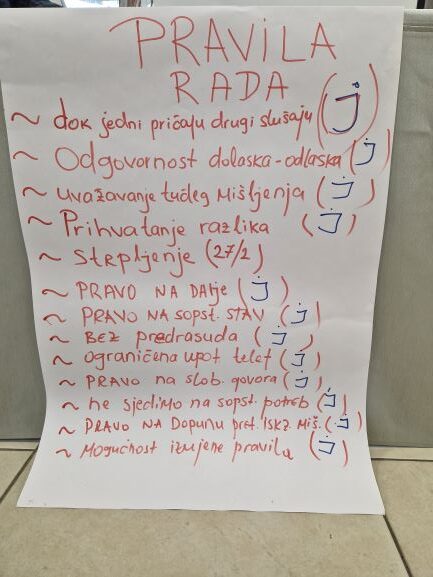 PRAVILA
RADA
~ dok jedni pričaju drugi slušaju (j)
~ Odgovornost dolaska-odlaska (j)
~ uvažavanje tuđeg Mišljenja (j)
~ Prihvatanje razlika (j)
~ STRPLjENJE (27/2)
~ PRAVO NA DAlje (j)
~ PRAVO NA SOPST. STAV (j)
~ BEZ predrasuda (j)
~ Ograničena upot telef (j)
~ PRAVO na slob. govora (j)
~ ne sjedimo na sopst. potreb (j)
~ PRAVO NA Dopunu pret. ISKZ. Miš. (j)
~ Mogućnost izmjene pravila (j)